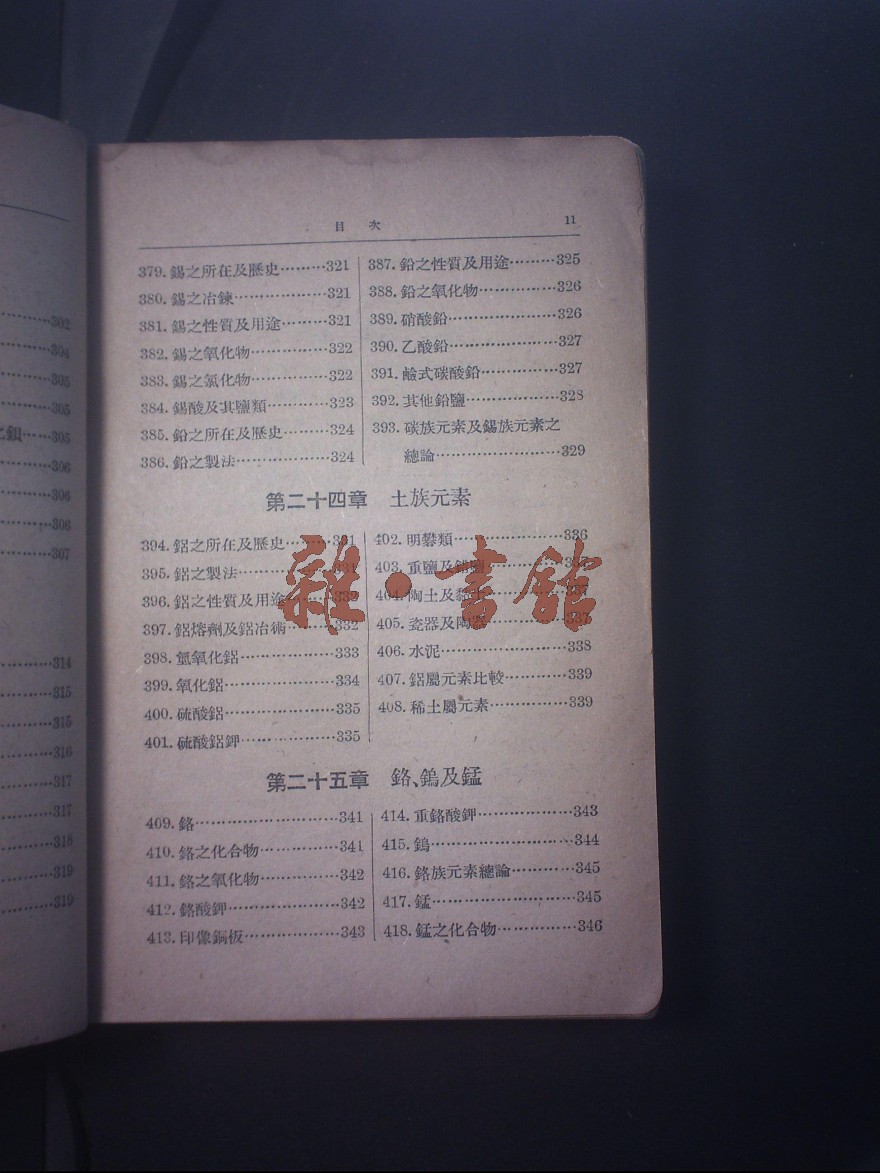 目 次 11
379. 錫之所在及歷史………321
380. 錫之冶鍊………………321
381. 錫之性質及用途………321
382. 錫之氧化物……………322
383. 錫之氯化物……………322
384. 錫酸及其鹽類…………323
385. 鉛之所在及歷史………324
386. 鉛之製法………………324
387. 鉛之性質及用途………325
388. 鉛之氧化物……………326
389. 硝酸鉛…………………326
390. 乙酸鉛…………………327
391. 鹼式碳酸鉛……………327
392. 其他鉛鹽………………328
393. 碳族元素及錫族元素之
總論……………………329
第二十四章 土族元素
394. 鋁之所在及歷史………331
395. 鋁之製法………………331
396. 鋁之性質及用途………332
397. 鋁熔劑及鋁冶術………332
398. 氫氧化鋁………………333
399. 氧化鋁…………………334
400. 硫酸鋁…………………335
401. 硫酸鋁鉀………………335
402. 明礬類…………………336
403. 重鹽及錯鹽
404. 陶土及黏土……………337
405. 瓷器及陶器……………337
406. 水泥……………………338
407. 鋁屬元素比較…………339
408. 稀土屬元素……………339
第二十五章 鉻、鎢及錳
409. 鉻………………………341
410. 鉻之化合物……………341
411. 鉻之氧化物……………342
412. 鉻酸鉀…………………342
413. 印像銅板………………343
414. 重鉻酸鉀………………343
415. 鎢………………………344
416. 鉻族元素總論…………345
417. 錳………………………345
418. 錳之化合物……………346
雜·書館
302
304
305
305
鋇……305
306
306
306
307
314
315
315
316
317
317
318
319
319